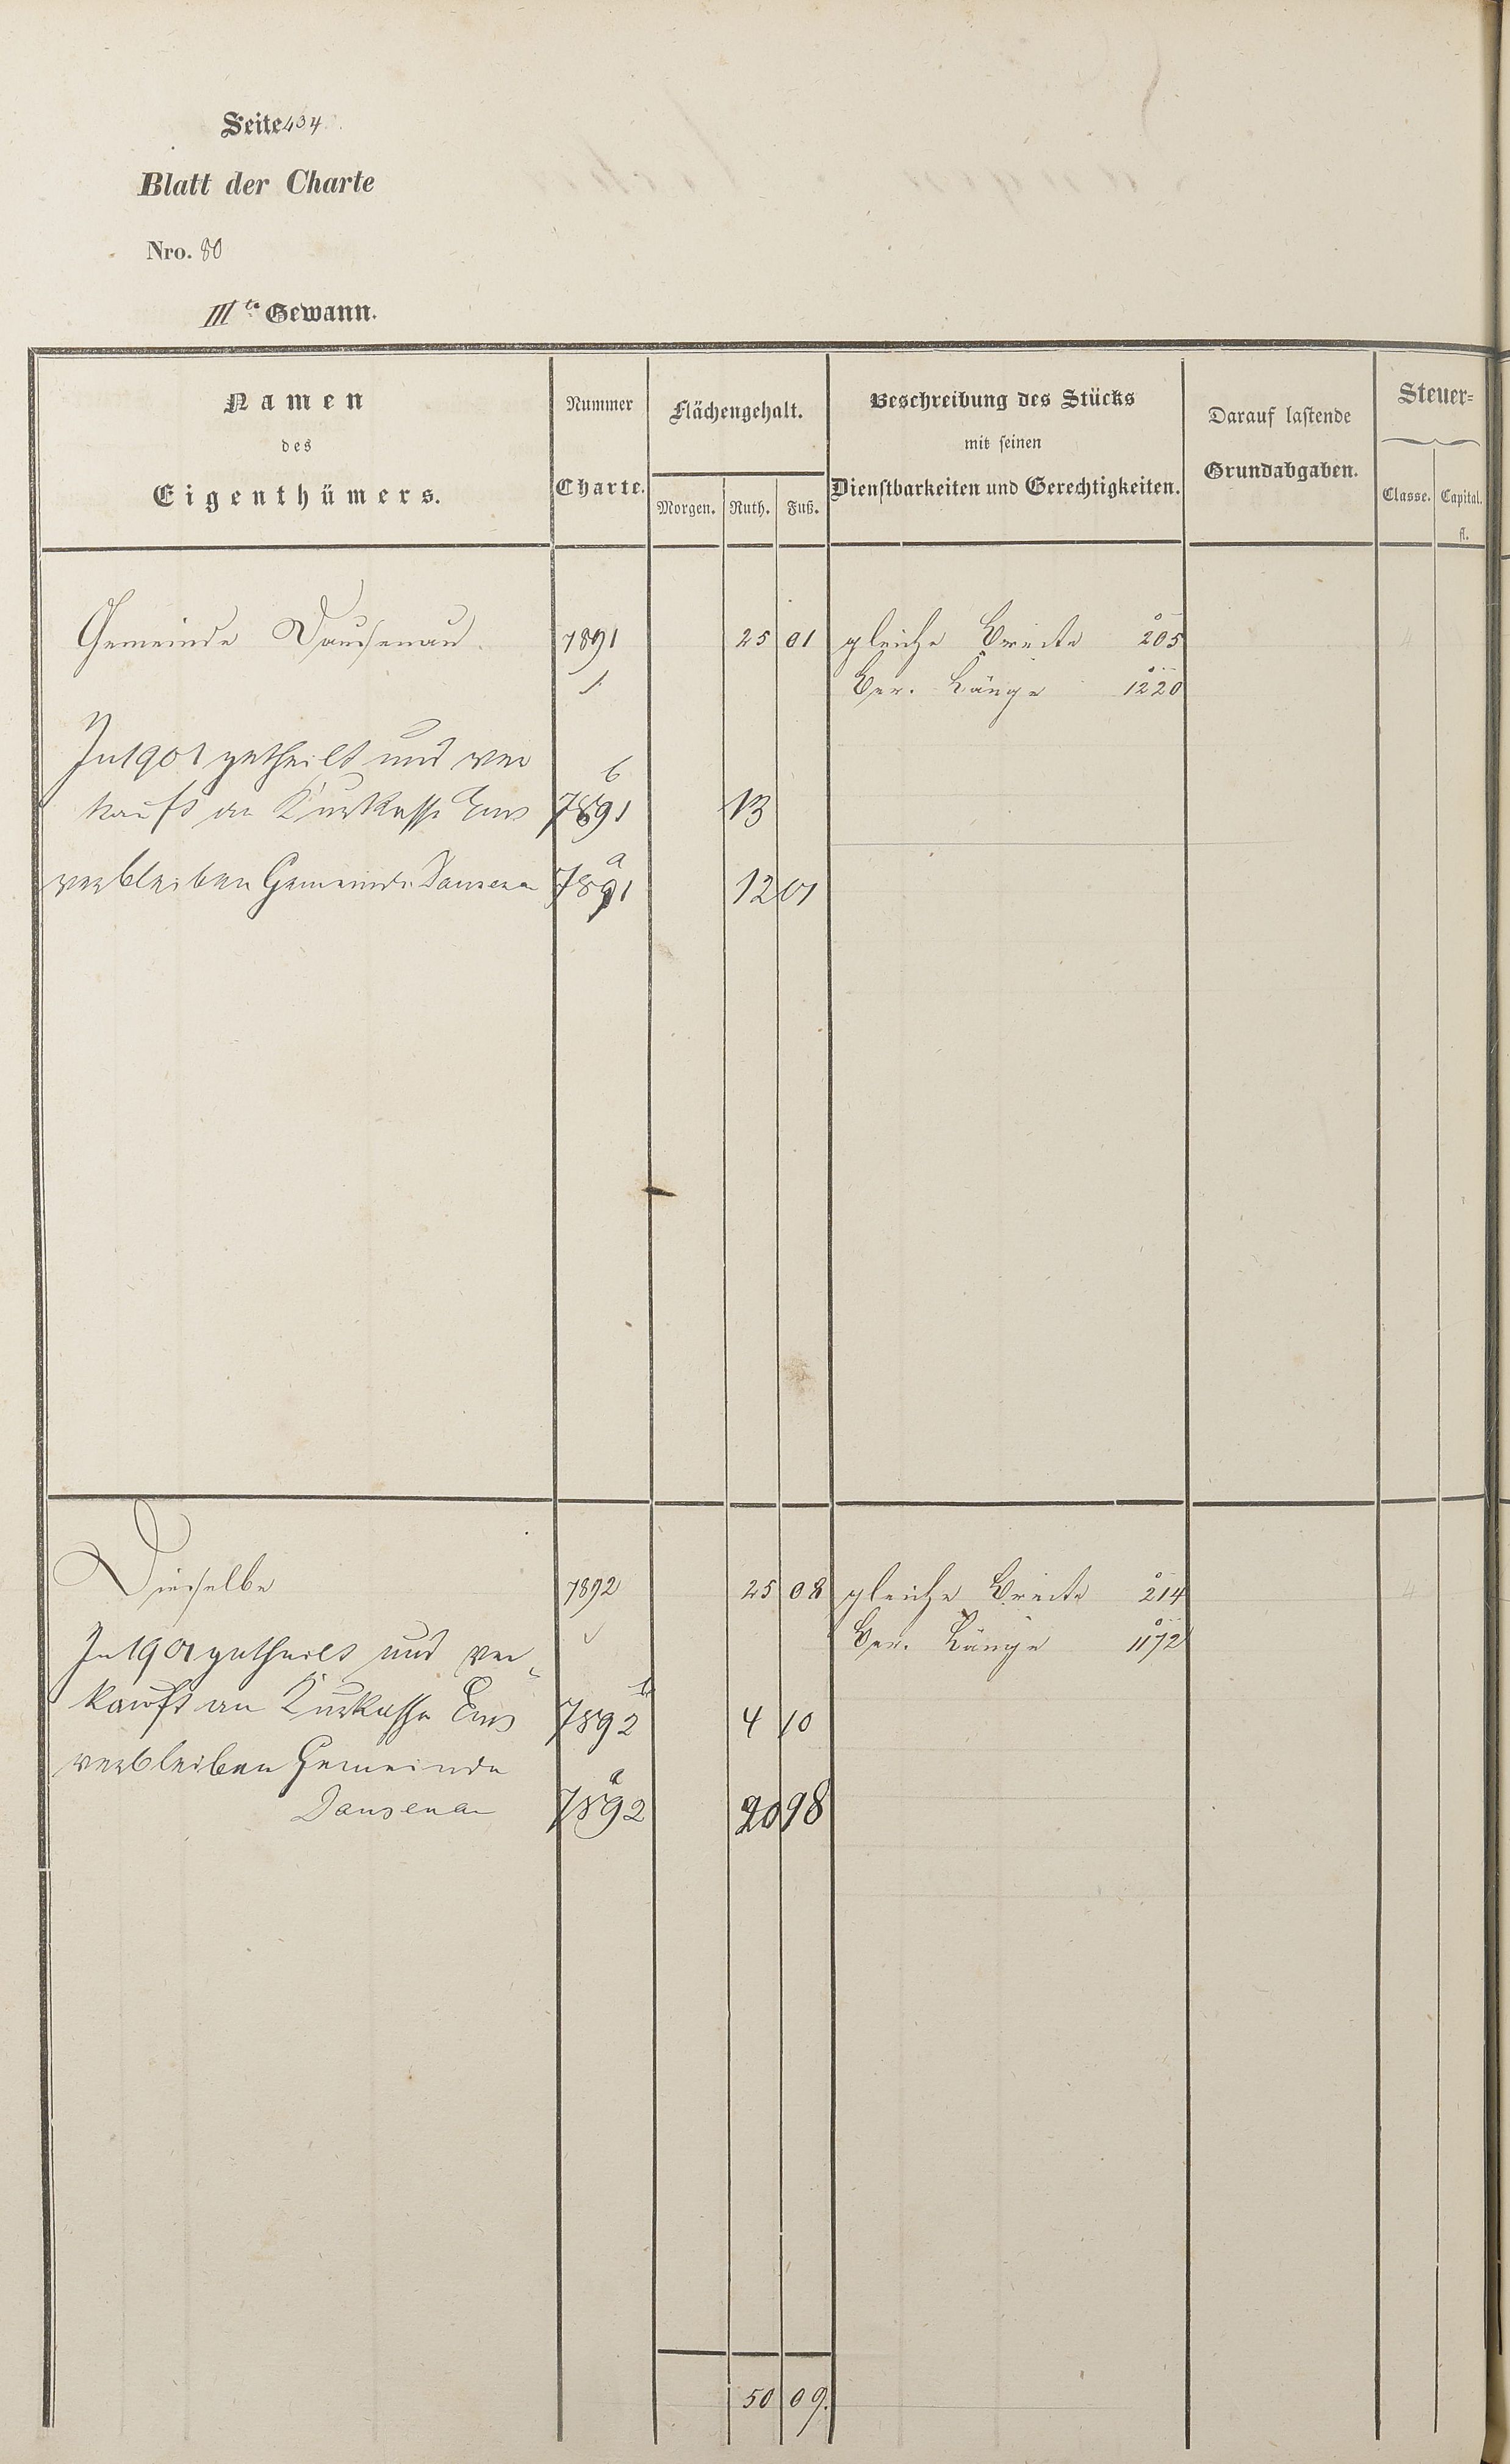 Seite 434.
Blatt der Charte
Nro. 80
III te Gewann.
Namen
des
Eigenthümers.
Nummer
Charte.
Flächengehalt.
Morgen. Ruth. Fuß.
Beschreibung des Stücks
mit seinen
Dienstbarkeiten und Gerechtigkeiten.
Darauf lastende
Grundabgaben.
Steuer-
Classe. Capital.
fl.
Gemeinde Dausenau. 7891 25 01 gleiche Breite 205
Ber. Länge 1220
In 1901 getheilt und ver
kauft an Kurkasse Ems 7891 b 13
verbleiben Gemeinde Dausenau 7891 a 12 01
Dieselbe 7892 25 08 gleiche Breite 214
Ber. Länge 1172
In 1901 getheilt und ver-
kauft an Kurkasse Ems 7892 b 4 10
verbleiben Gemeinde
Dausenau 7892 a 20 98
50 09.